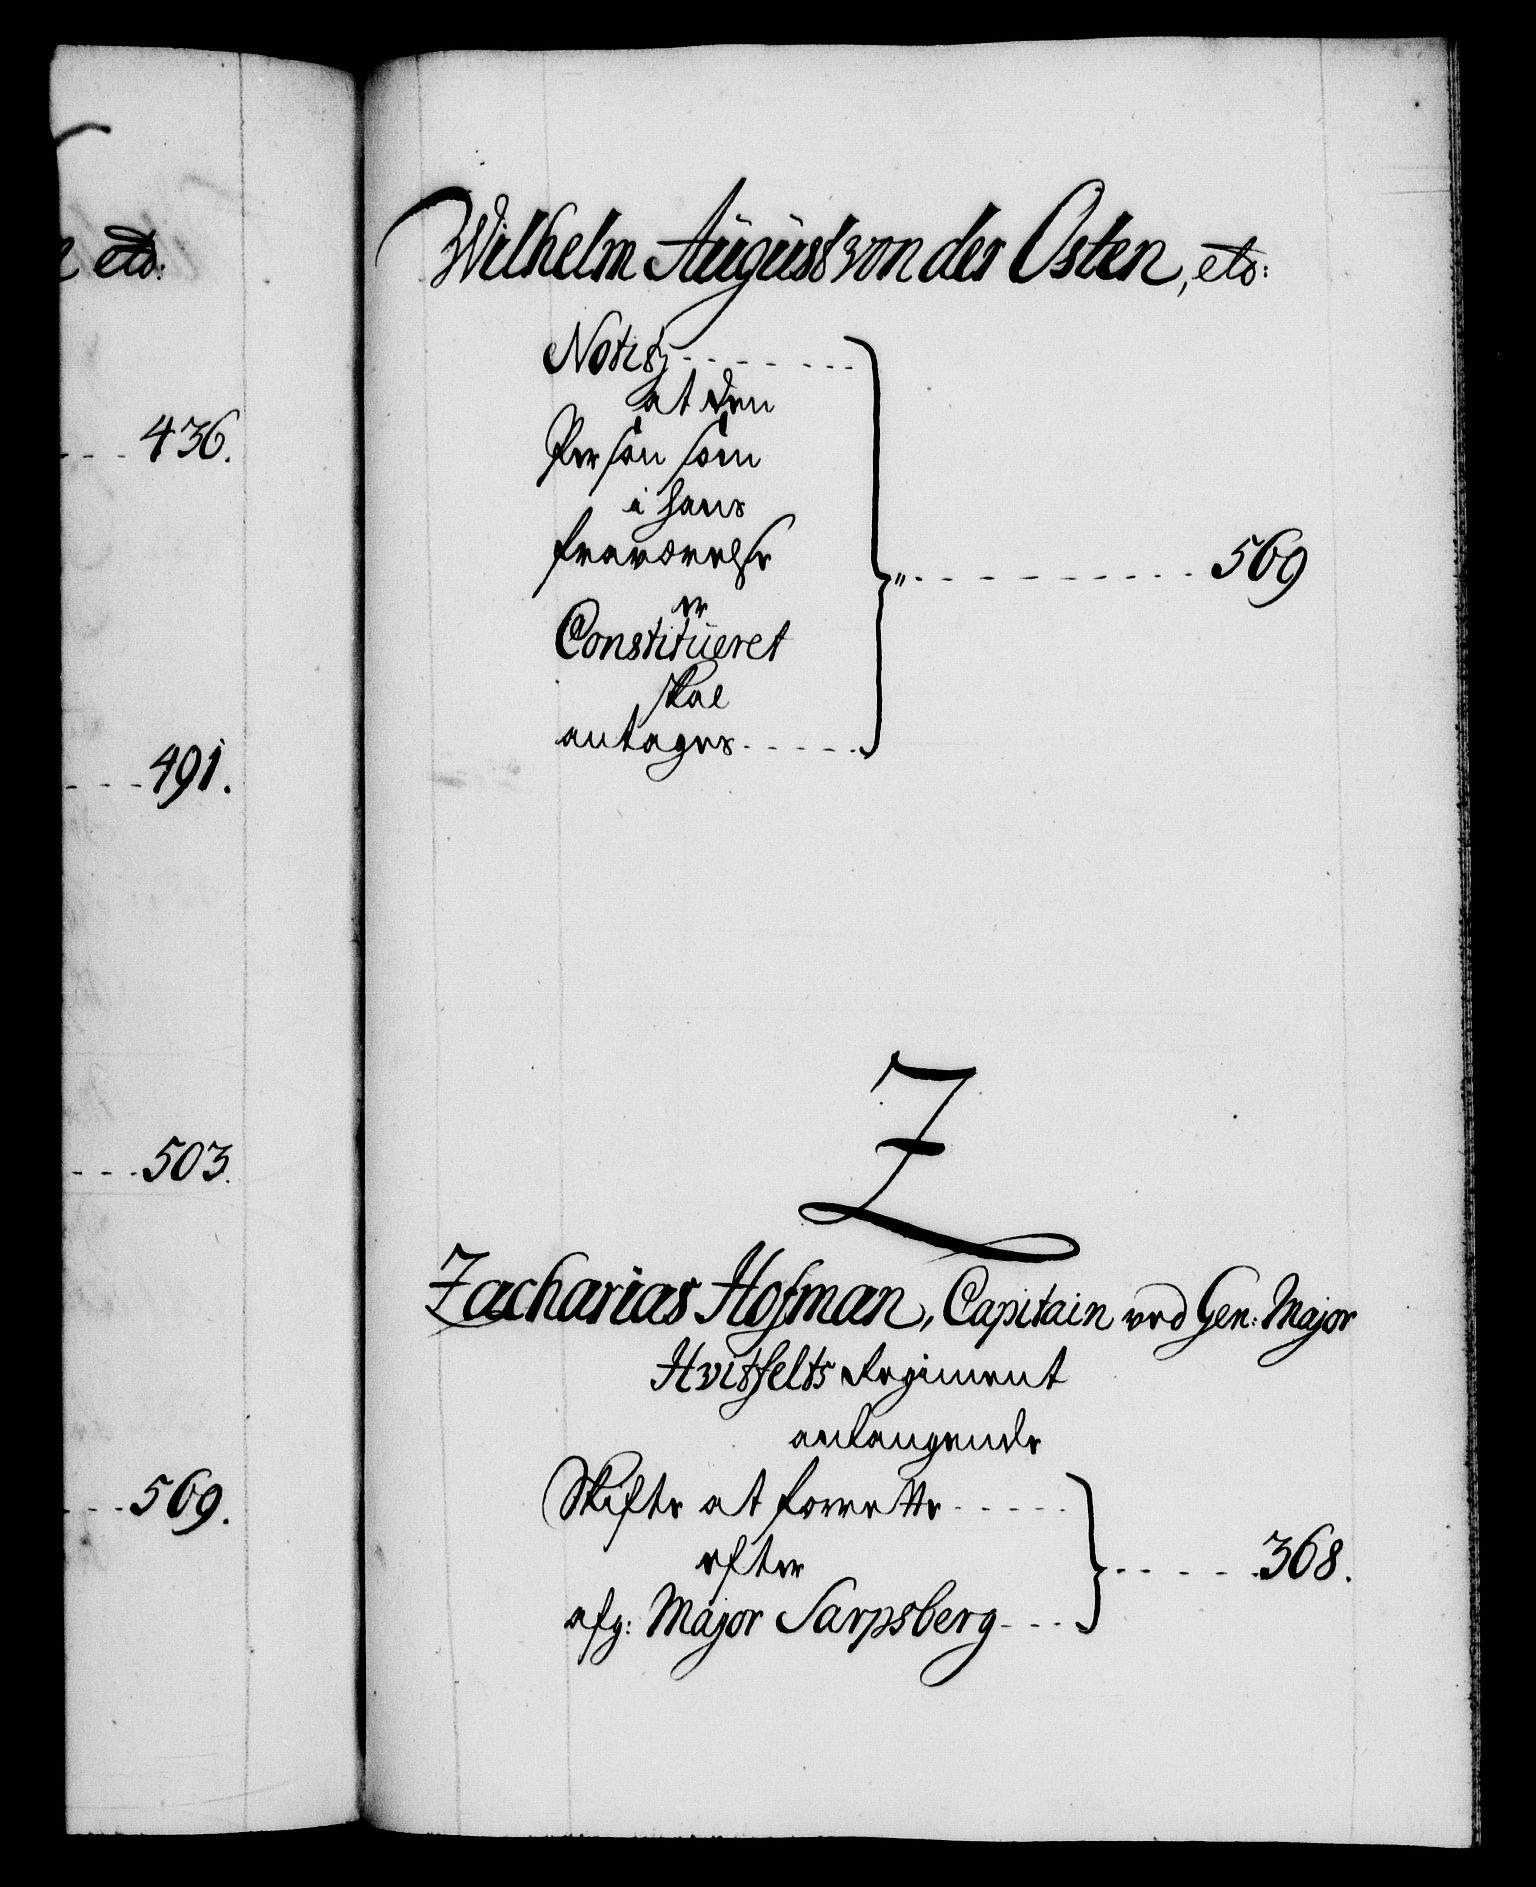 etc:
436.
491.
503.
569.
Wilhelm August von der Osten, etc:
Notitz
at den
Person som
i hans
fraværelse
er
Constitueret
skal
antages
569
Z
Zacharias Hofman, Capitain ved Gen: Major
Hvitfelts Regiment
anlangende
Skifte at forrette
efter
afg: Major Sarpsberg
368.